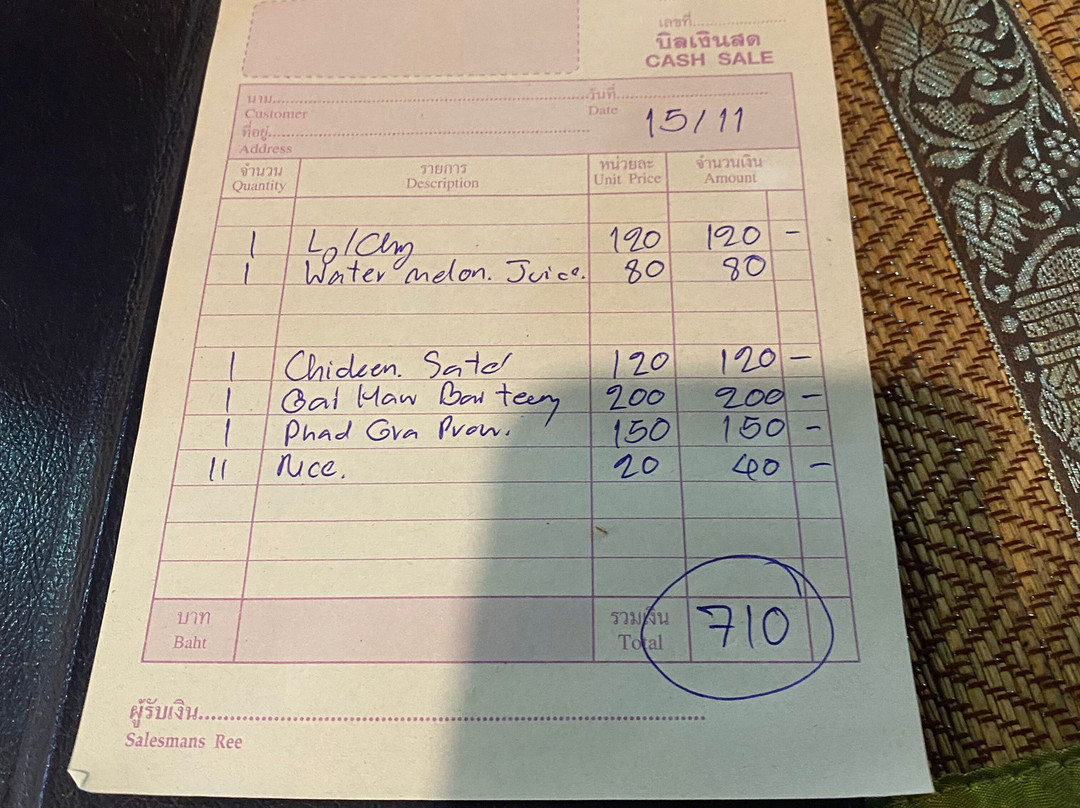 เลขที่
บิลเงินสด
CASH SALE
นาม วันที่
Customer Date 15/11
ที่อยู่
Address
จำนวน รายการ หน่วยละ จำนวนเงิน
Quantity Description Unit Price Amount
1 120 120 -
1 Water melon. Juice. 80 80
1 Chicken. Saté 120 120 -
1 Gai Haw Bai teey 200 200 -
1 Phad Gra Prow. 150 150 -
11 Rice. 20 40 -
บาท รวมเงิน 710
Baht Total
ผู้รับเงิน
Salesmans Ree